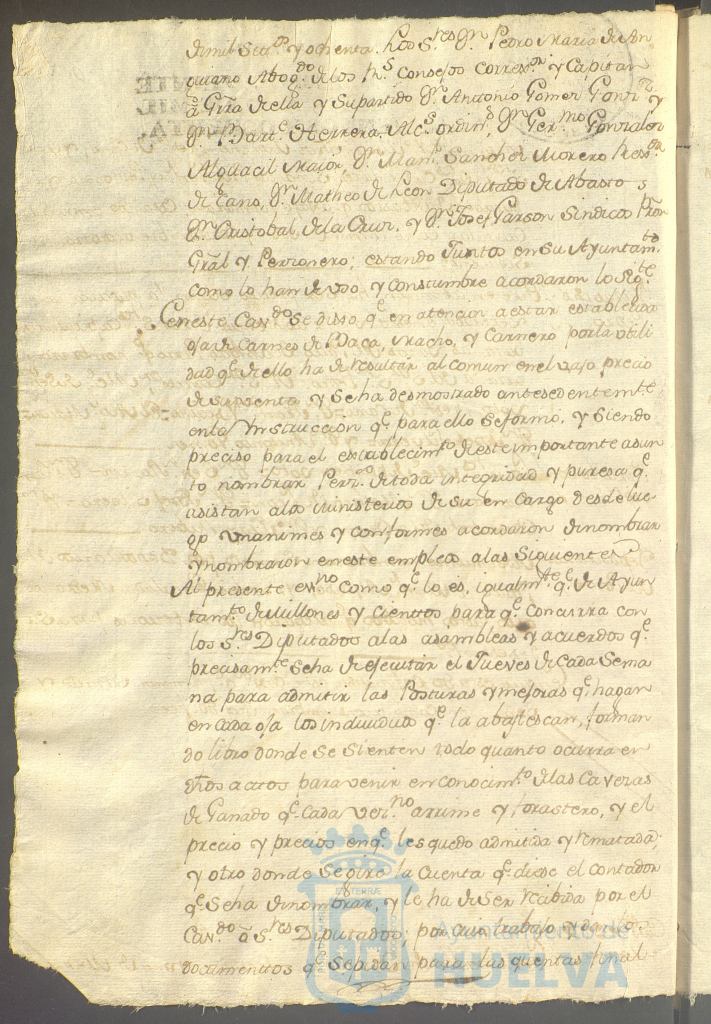 de mil Setts. y ochenta. los Sres. Dn. Pedro Maria de An
quiano Abogdo. de los Rs. Consejos Correxor. y Capitan
a Grra de ella y Supartido Dn. Antonio Gomez Gonz. y
Dn. Bart.e Herrera, Alcs. ordins. Dn. Germo. Gonzalez
Alguacil Maior, Dn. Man.l Sanchez Moreno
de Cano, Dn. Matheo de Leon Diputado de Abastos
Dn. Cristobal de la Cruz, y Dn. Josef Garson Sindico Pror.
Gral y Perzonero; estando Juntos en Su Ayuntamto.
como lo han de uso y Constumbre acordaron lo Sigte.
En este Cavdo. se disso, qe. en atencion a estar establecida
oja de Carnes de Baca, Macho, y Carnero por la utili
dad qe. de ello ha de resultar al comun en el vajo precio
de su venta y Se ha desmostrado antesedentemte.
en la Ynstruccion qe. para ello Se formó, y Siendo
preciso para el establecimto. de este importante asun
to nombrar Perzo. de toda integridad y puresa qe.
asistan alos Ministerios de su en Cargo desde lue
go unanimes y conformes acordaron de nombrar
y nombraron en este empleo a las Siguientes
Al presente esno. como qe. lo es, igualmte. qe. de Ayun
tamto. de Millones y Cienttos para qe. Concurra con
los Sres. Diputados a las asambleas y acuerdos qe.
precisamte. Se ha de ejecutar el Jueves de Cada Sema
na para admitir las Posturas y mejoras qe. hagan
en cada oja los individuos qe. la abastescan, forman
do libro donde Se Sienten todo quanto ocurra en
dhos actos para venir en conocimto. de las Cavezas
de Ganado qe. Cada vezno. arrime y forastero, y el
precio y precios en qe. les quedo admitida y rematada;
y otro donde Se gire la Cuenta qe. diese el contador
qe. Se ha de nombrar, y le ha de Ser recibida por el
Cavdo. o Sres. Diputados; por cuio trabajo y dar los
documenttos qe. Se pidan para las quentas final
Ayuntamiento de
HUELVA